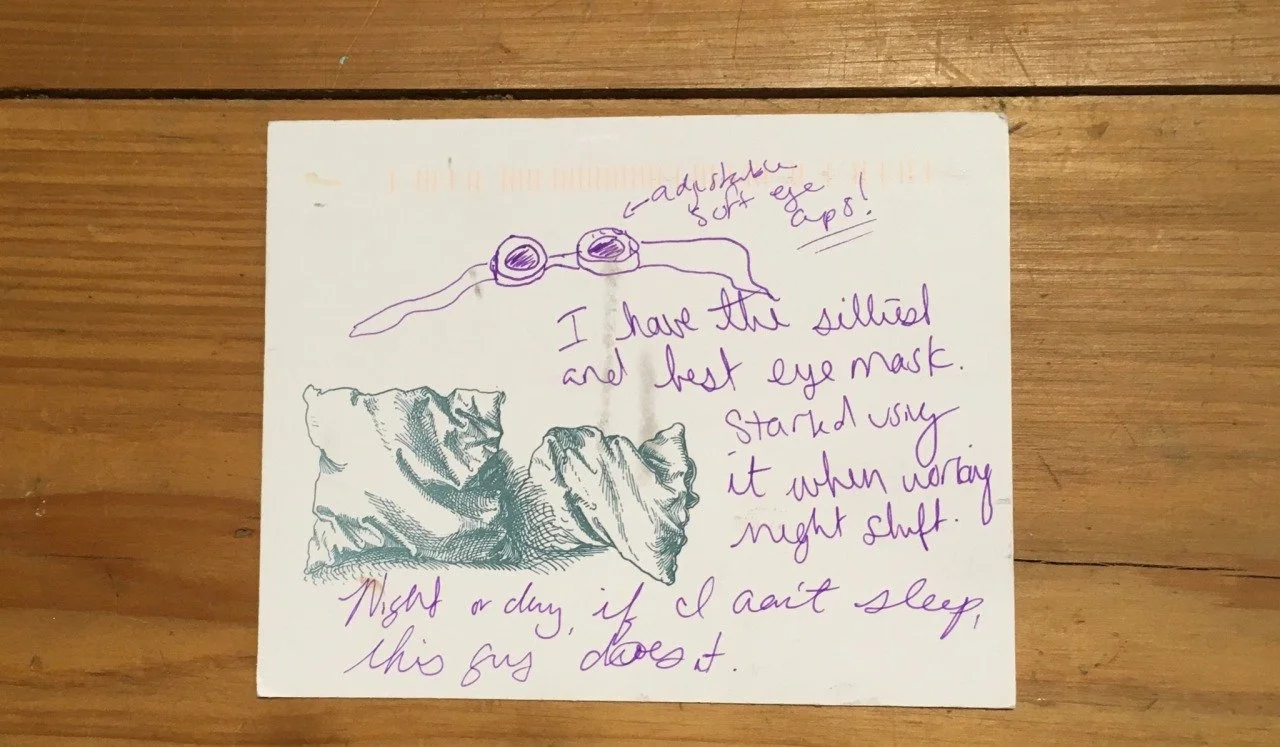 adjustable
soft eye
cups!
I have the silliest
and best eye mask.
Started using
it when working
night shift.
Night or day, if I can't sleep,
this guy does it.